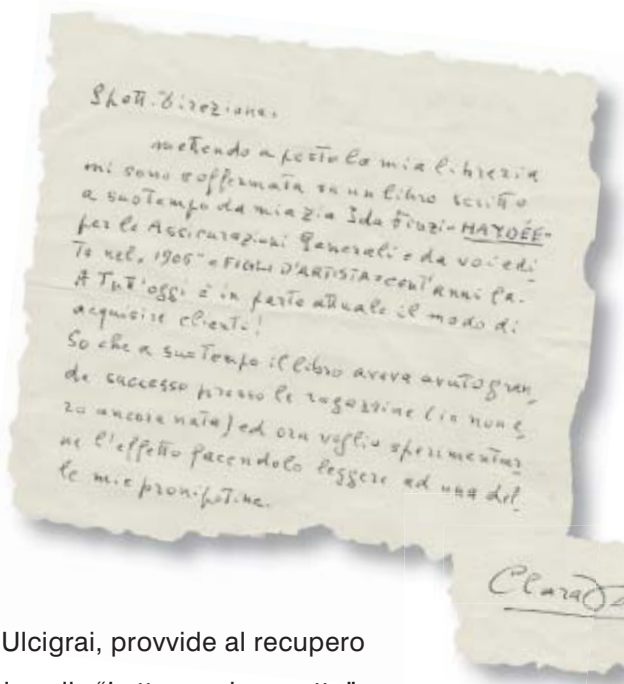 Spett. Direzione,
mettendo a posto la mia libreria
mi sono soffermata su un libro scritto
a suo tempo da mia zia Ida Finzi - HAYDÉE -
per le Assicurazioni Generali e da voi edi
to nel, 1906 " e FIGLI D'ARTISTA = cent'anni fa.
A tutt'oggi è in parte attuale il modo di
acquisire clienti!
So che a suo tempo il libro aveva avuto gran,
de successo presso le ragazzine (io non e,
ro ancora nata) ed ora voglio sperimentar
ne l'effetto facendolo leggere ad una del
le mie pronipotine.
Clara
Ulcigrai, provvide al recupero